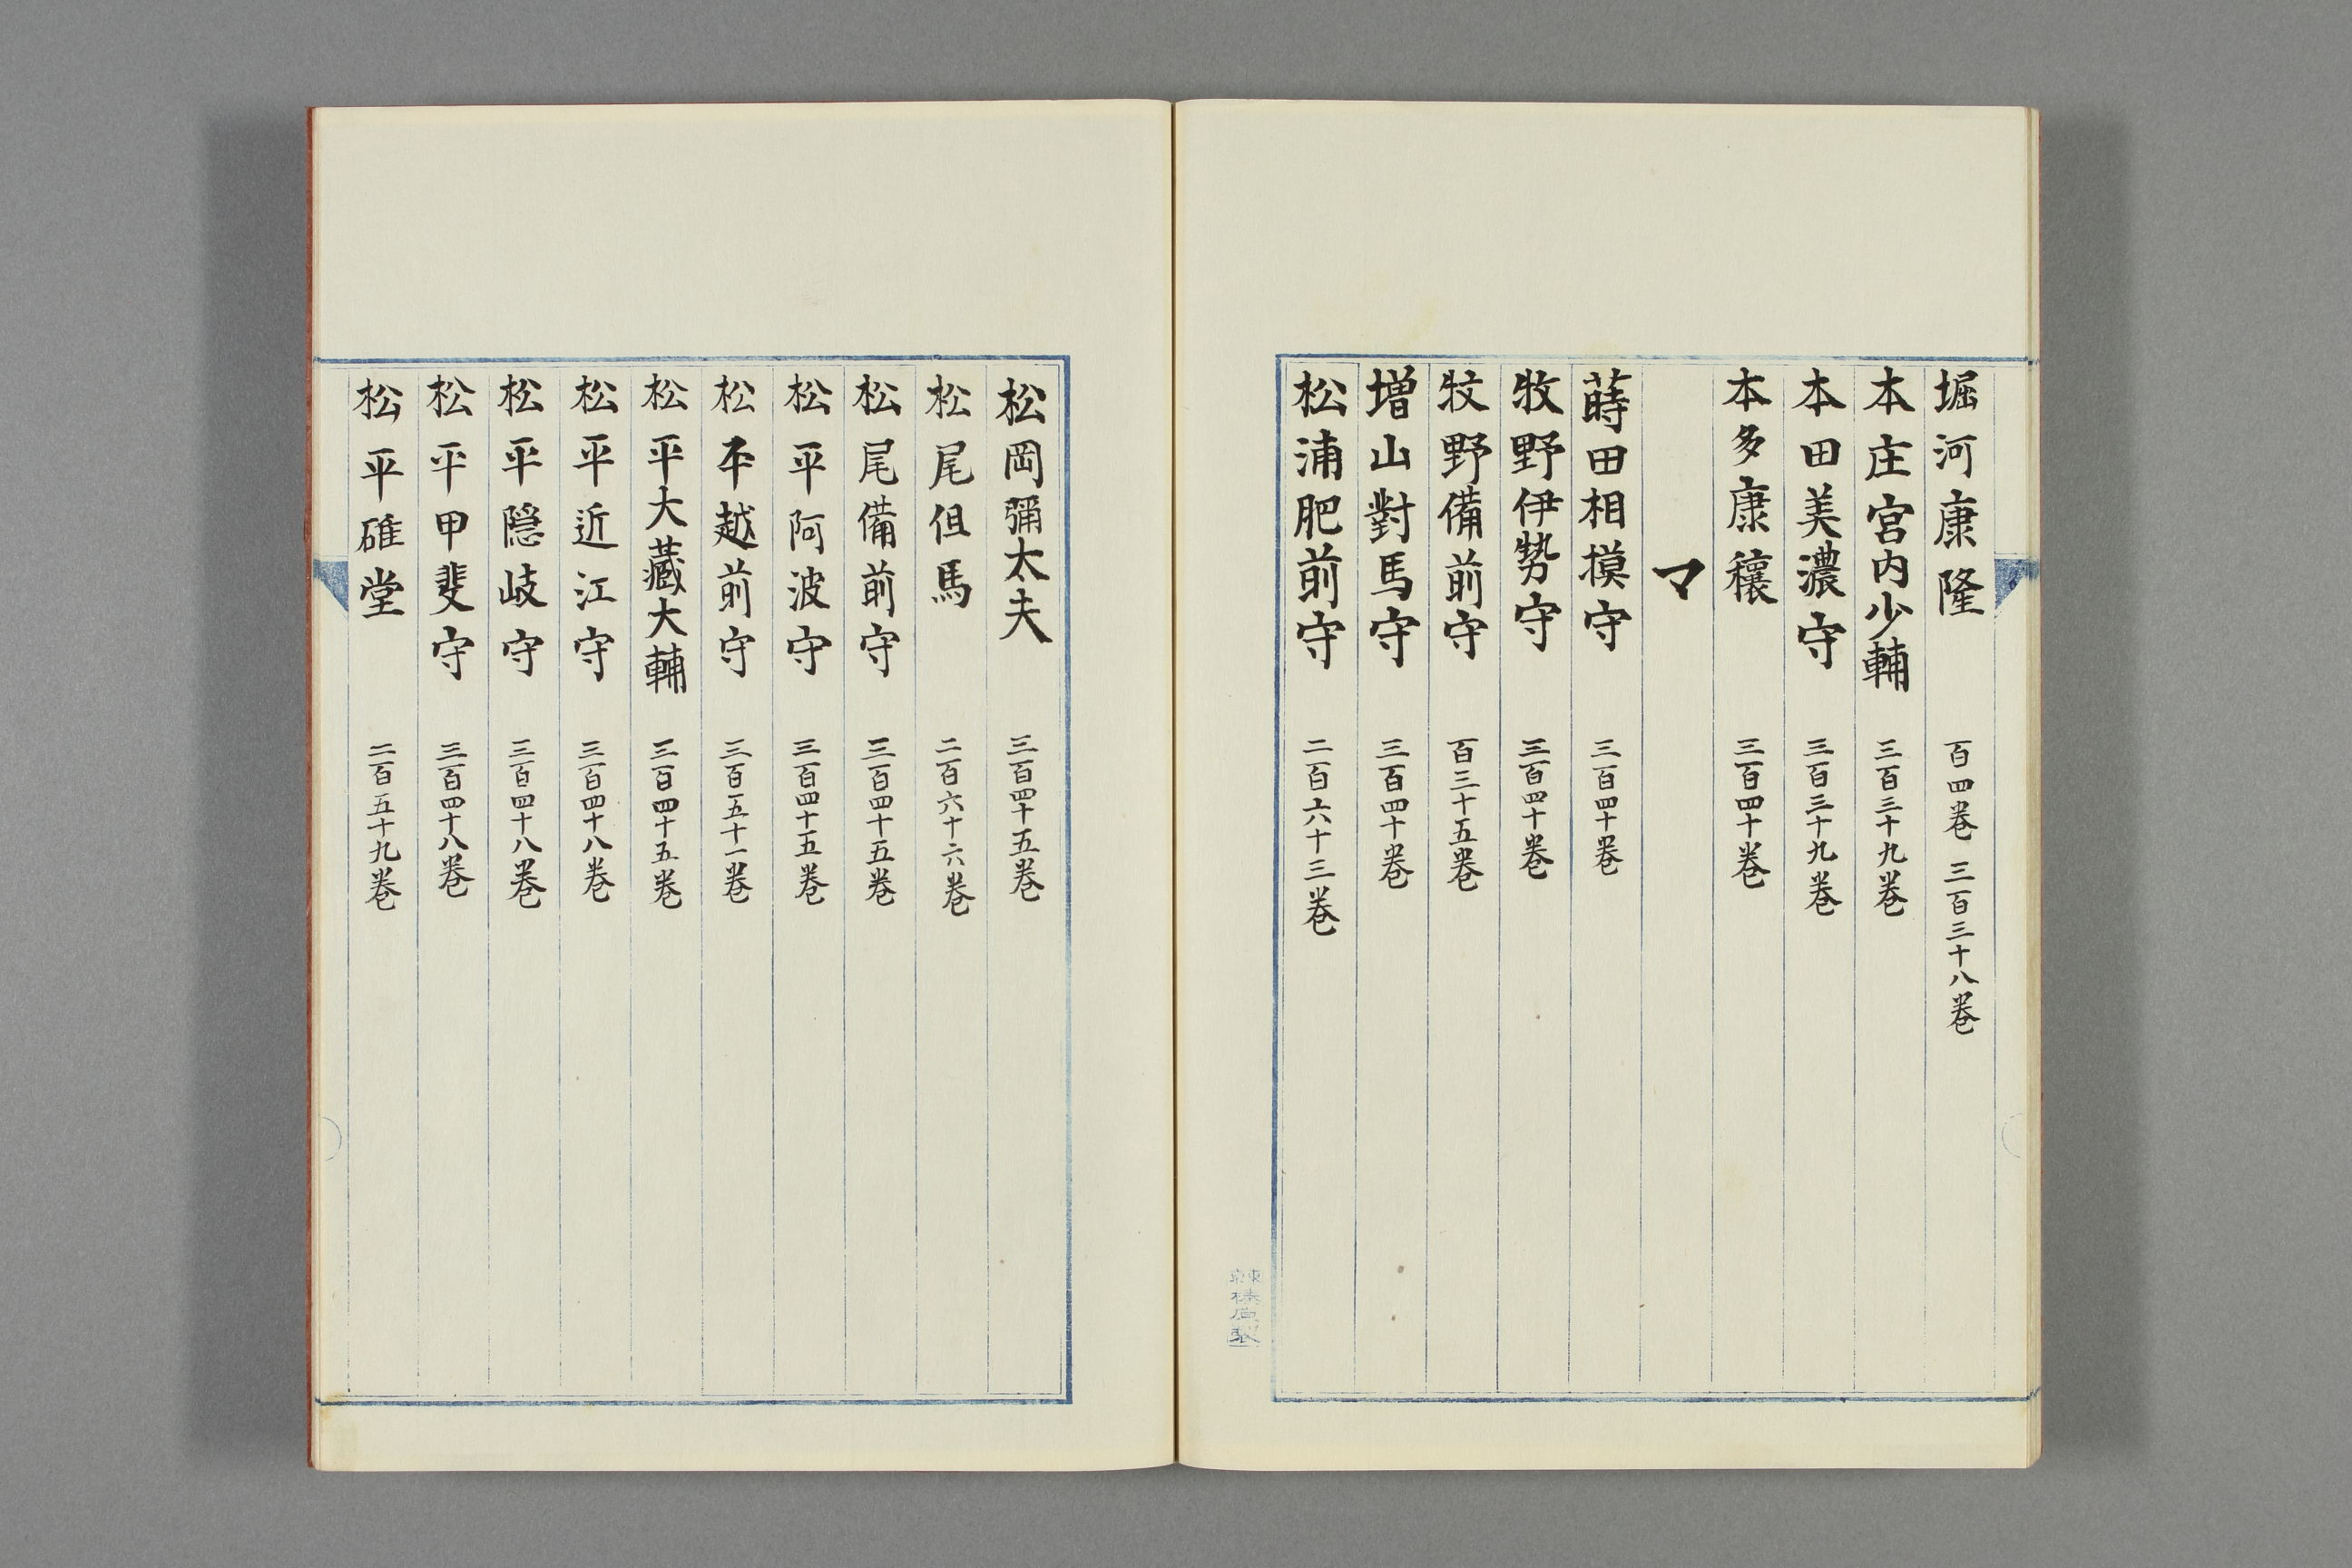 堀河康隆 百四卷 三百三十八卷
本庄宮内少輔 三百三十九卷
本田美濃守 三百三十九卷
本多康穰 三百四十卷
マ
蒔田相摸守 三百四十卷
牧野伊勢守 三百四十卷
牧野備前守 百三十五卷
増山對馬守 三百四十卷
松浦肥前守 二百六十三卷
松岡彌太夫 三百四十五卷
松尾但馬 二百六十六卷
松尾備前守 三百四十五卷
松平阿波守 三百四十五卷
松平越前守 三百五十一卷
松平大藏大輔 三百四十五卷
松平近江守 三百四十八卷
松平隠岐守 三百四十八卷
松平甲斐守 三百四十八卷
松平碓堂 二百五十九卷